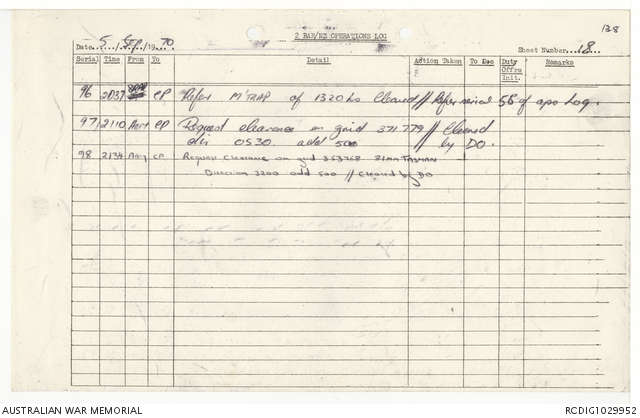 138
2 RAR/NZ OPERATIONS LOG
Date 5 / SEP /19 70
Sheet Number 18
Serial Time From To Detail Action Taken To Dec Duty Offrs Init. Remarks
96 2037 CP Refer M'TRAP of 1320 hs Cleared // Refer serial 58 of aps Log.
97 2110 Arty CP Request clearance on grid 371779 // Cleared
dir 0530 add 500 by DO.
98 2134 Arty CP Request Clearance on grid 353768 81mm TASMAN
Direction 3200 add 500 // Cleared by DO
AUSTRALIAN WAR MEMORIAL
RCDIG1029952